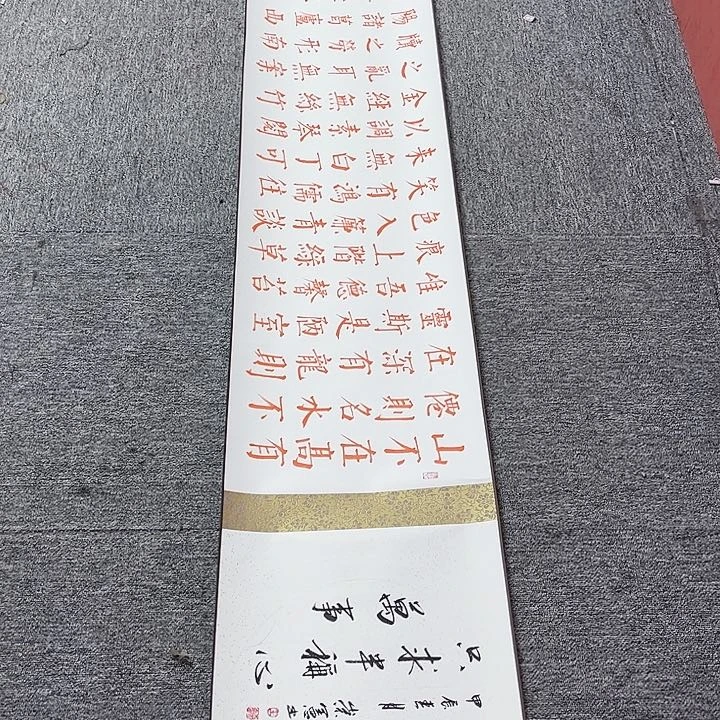 萬事
只求半稱心
甲辰春月
山不在高有
僊則名水不
在深有龍則
靈斯是陋室
惟吾德馨苔
痕上階綠草
色入簾青談
笑有鴻儒往
来無白丁可
以調素琴閱
金經無絲竹
之亂耳無案
牘之勞形南
陽諸葛廬西